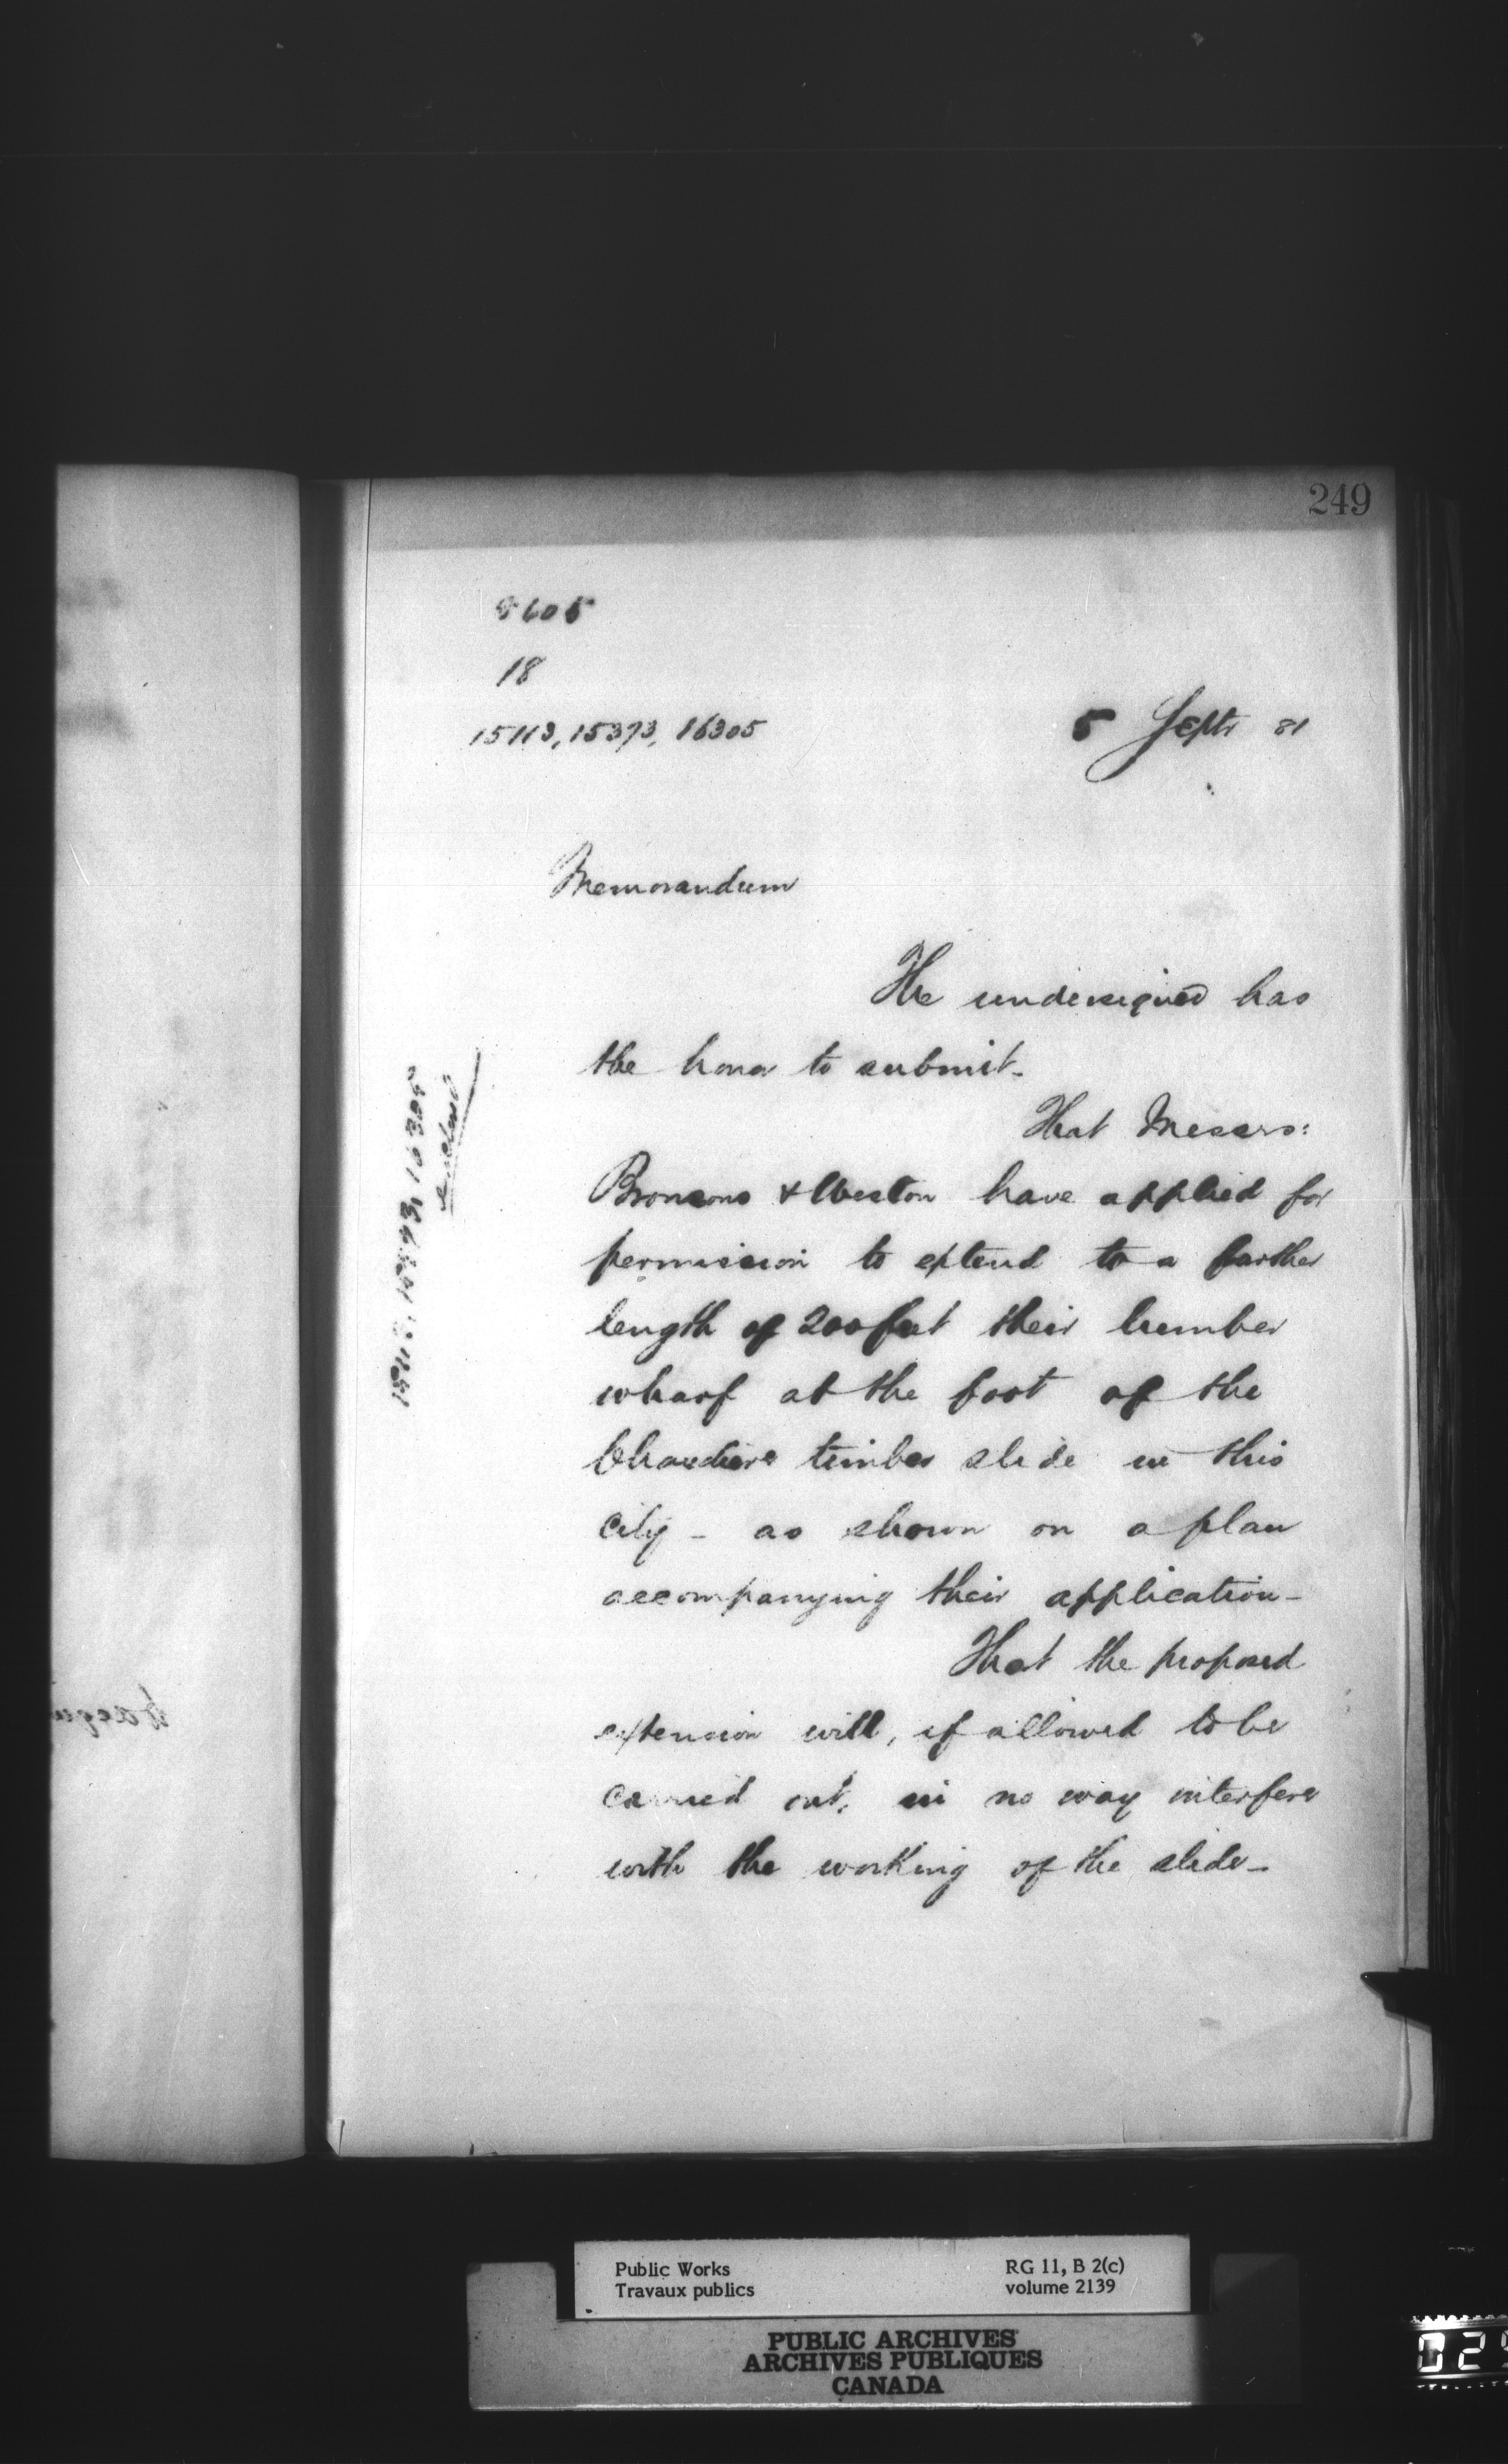 249
9605
18
15113, 15393, 16305
5 Septr 81
Memorandum
The undersigned has
the honor to submit-
That Messrs:
Bronsons & Weston have applied for
permission to extend to a further
length of 200 feet their lumber
wharf at the foot of the
Chaudiere timber slide in this
city - as shown on a plan
accompanying their application-
That the proposed
extension will, if allowed to be
carried out, in no way interfere
with the working of the slide-
15113, 15393, 16305
Public Works
Travaux publics
RG 11, B 2(c)
volume 2139
PUBLIC ARCHIVES
ARCHIVES PUBLIQUES
CANADA